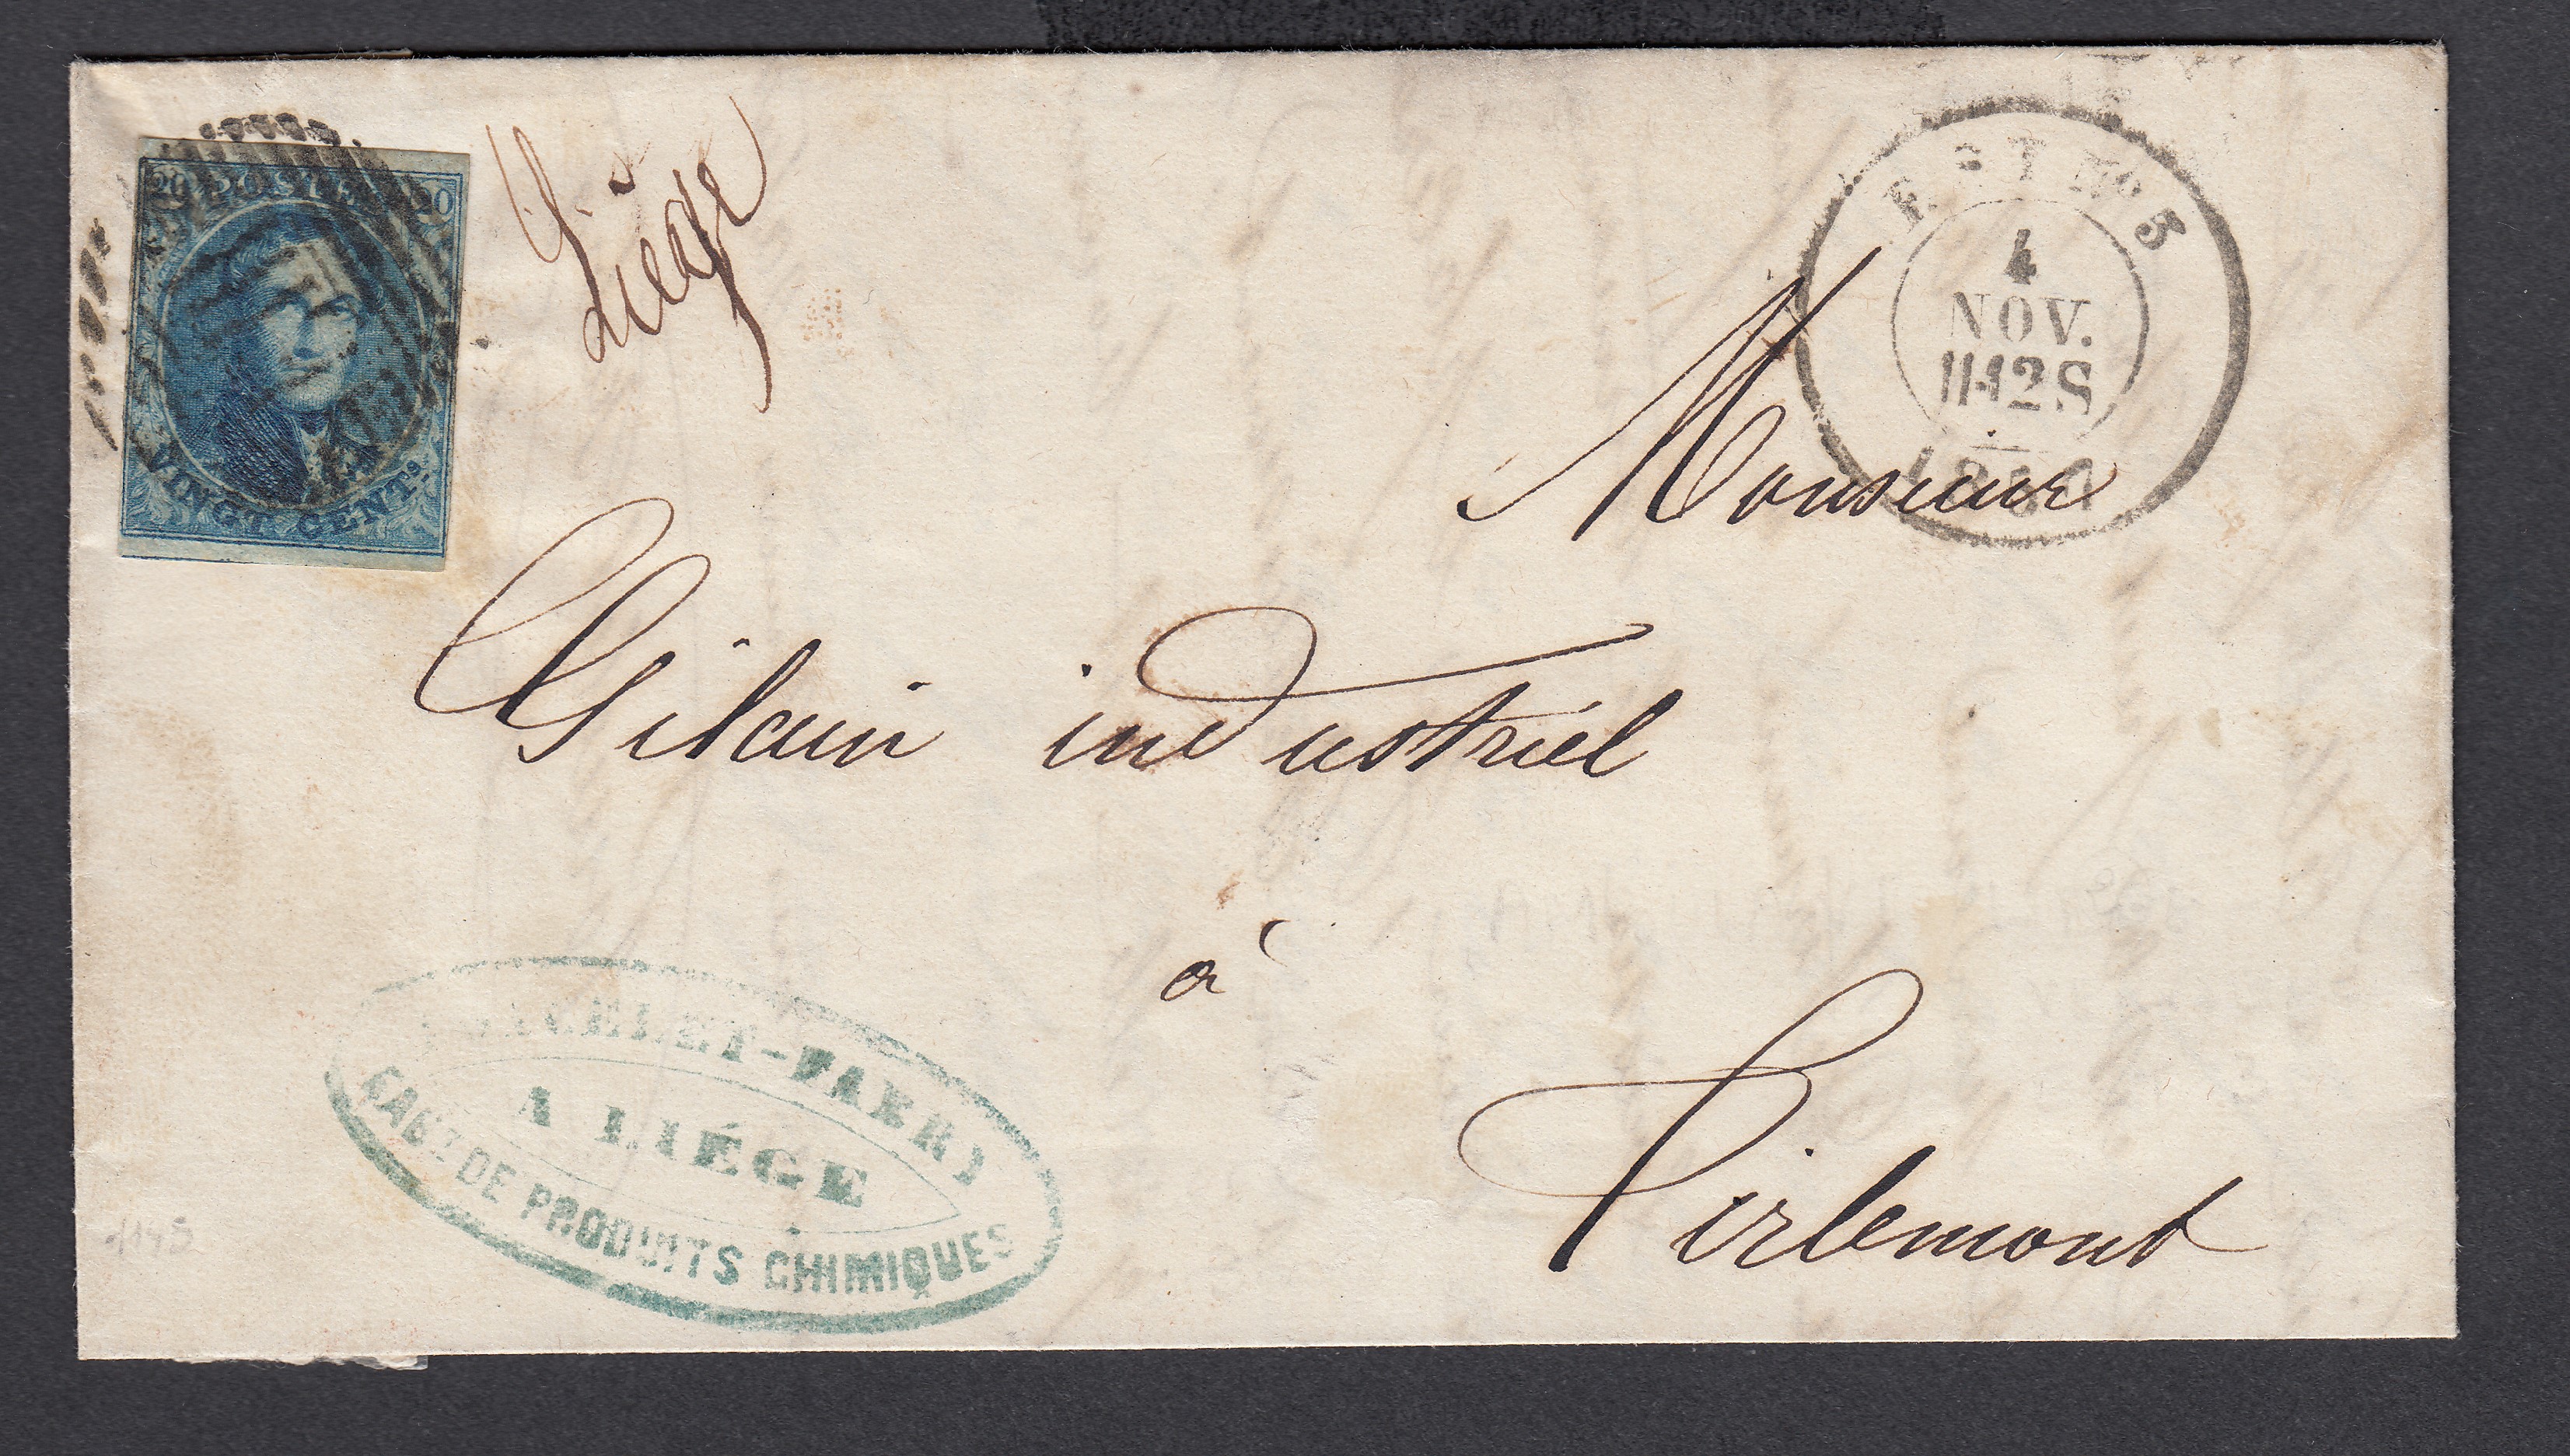 20 POSTES 20
VINGT CENTS.
Liége
EST No 5
4
NOV.
11-12 S
Monsieur
Gilain industriel
à
Tirlemont
A LIÉGE
FABT DE PRODUITS CHIMIQUES